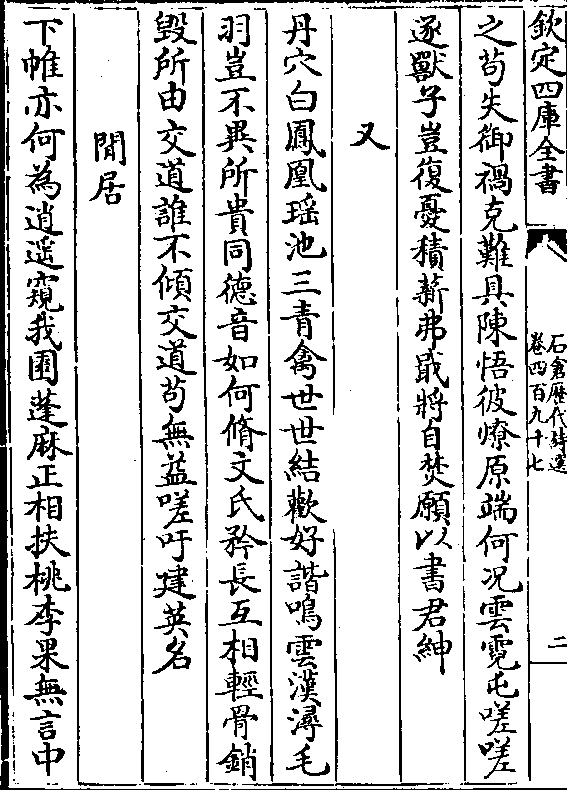 欽定四庫全書
石倉歷代詩選
卷四百九十七
二
之苟失御禍克難具陳悟彼燎原端何況雲霓屯嗟嗟
逐獸子豈復憂積薪弗戢將自焚願以書君紳
又
丹穴白鳳凰瑶池三青禽世世結歡好諧鳴雲漢潯毛
羽豈不異所貴同德音如何脩文氏矜長互相輕骨銷
毀所由交道誰不傾交道茍無益嗟吁建英名
閒居
下帷亦何為逍遥窺我園蓬麻正相扶桃李果無言中